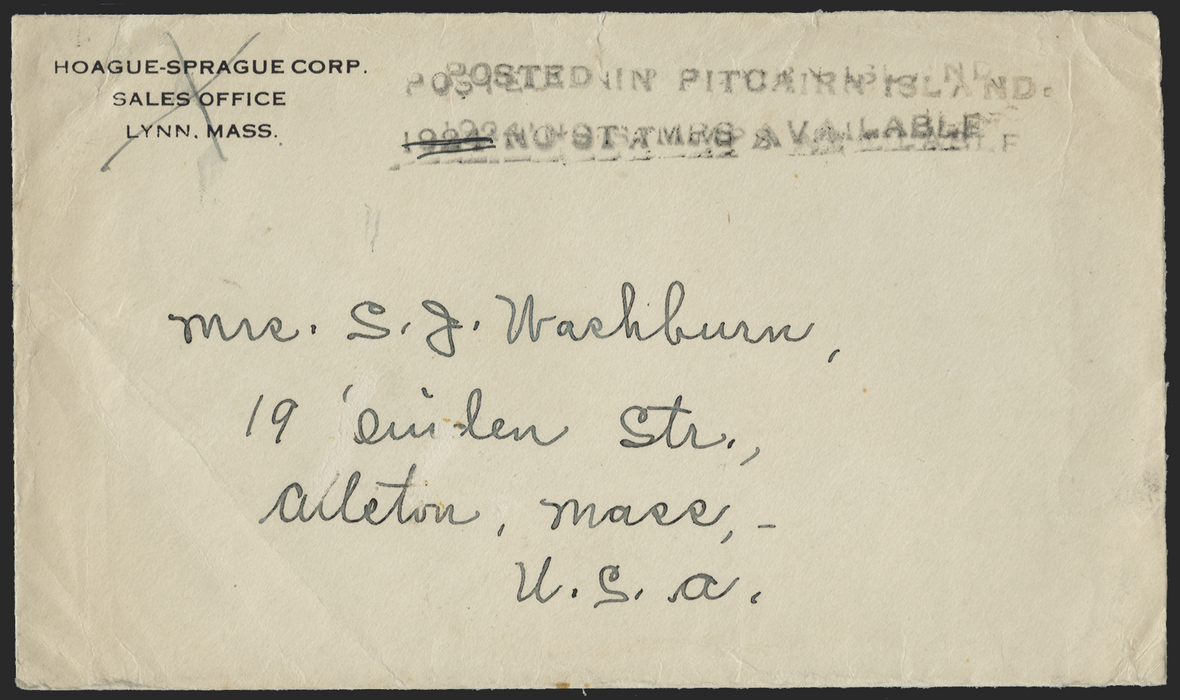 HOAGUE-SPRAGUE CORP.
SALES OFFICE
LYNN, MASS.
POSTED IN PITCAIRN ISLAND.
NO STAMPS AVAILABLE
Mrs. S. J. Washburn,
19 Str.,
Allston, Mass, -
U. S. A.